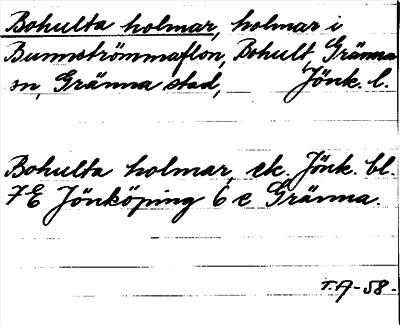 Bohulta holmar, holmar i
Bunnströmmaflon, Bohult, Gränna
sn, Gränna stad, Jönk. l.
Bohulta holmar, ek. Jönk. bl.
7E Jönköping 6 e Gränna.
T.A-58-